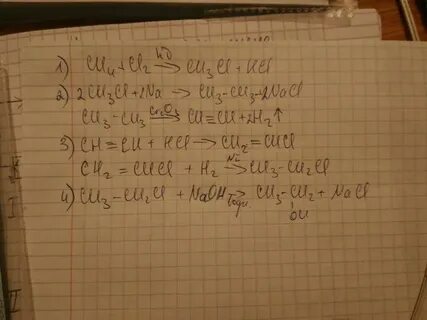 1) CH₄ + Cl₂ →(hν) CH₃Cl + HCl
2) 2CH₃Cl + 2Na → CH₃-CH₃ + 2NaCl
CH₃-CH₃ →(Cr₂O₃) CH≡CH + 2H₂↑
3) CH≡CH + HCl → CH₂=CHCl
CH₂=CHCl + H₂ →(Ni) CH₃-CH₂Cl
4) CH₃-CH₂Cl + NaOH → CH₃-CH₂ + NaCl
OH